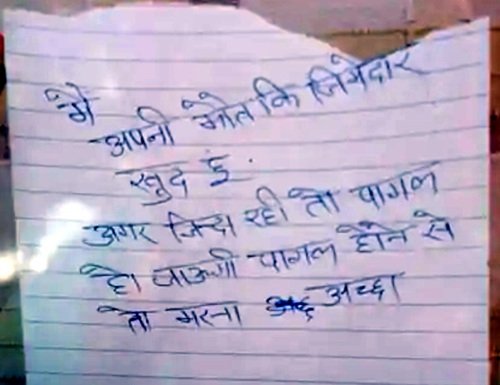 मे
अपनी मौत कि जिमेदार
खुद हुं.
अगर जिदा रही तो पागल
हो जाऊगी पागल होने से
तो मरना अच्छा